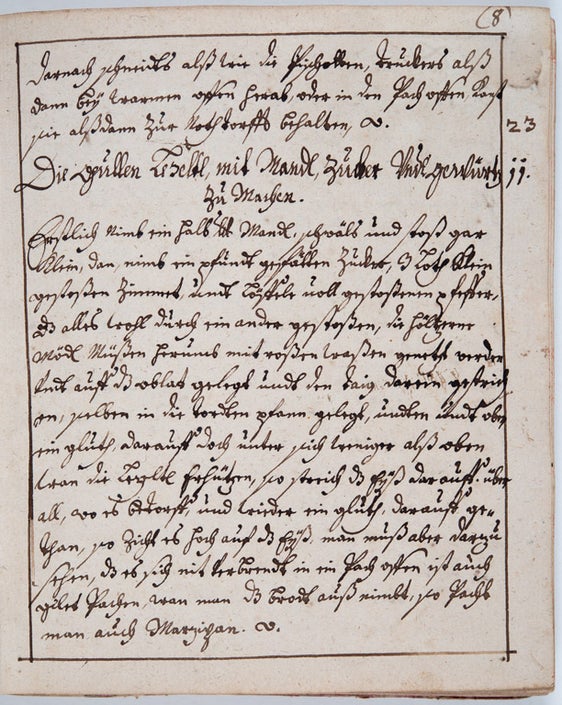 (8
darnach schneids alß wie die Pischotten, truckers alß
dann bey warmen offen herab, oder in den Pach offen, Kanst
sie alßdann zur Nothdorfft behalten,
23
Die gulden Lezeltl, mit Mandl, Zucker Undt gewürtz 11.
Zu Machen.
Erstlich nimb ein halb Mandl, schwöls und stoß gar
Klein, dan, nimb ein pfundt gefähten Zucker, 3 loth klein
gestoßen Zimmet, undt Löffele voll gestoßenen pfeffer,
dz alles wohl durch ein ander gestoßen, die hölzerne
Mödl Müßen herumb mit roßen waßer genetzt werden
Undt auff dz oblat gelegt undt den taig darein gestrich
en, selben in die tordten pfann gelegt, undten undt oben
ein gluth darauff doch unter sich weniger alß oben
wan die Lezeltl erhützen, so streich dz Eyß darauff über
all, wo es bedorff, und wieder ein gluth darauff ge-
than, so Zicht es hoch auf dz Eyß, man muß aber darzu
sehen, dz es sich nit verbrendt in ein Pach offen ist auch
guets Pachen, wan man dz brodt auß nimbt, so Pachs
man auch Marzipan.